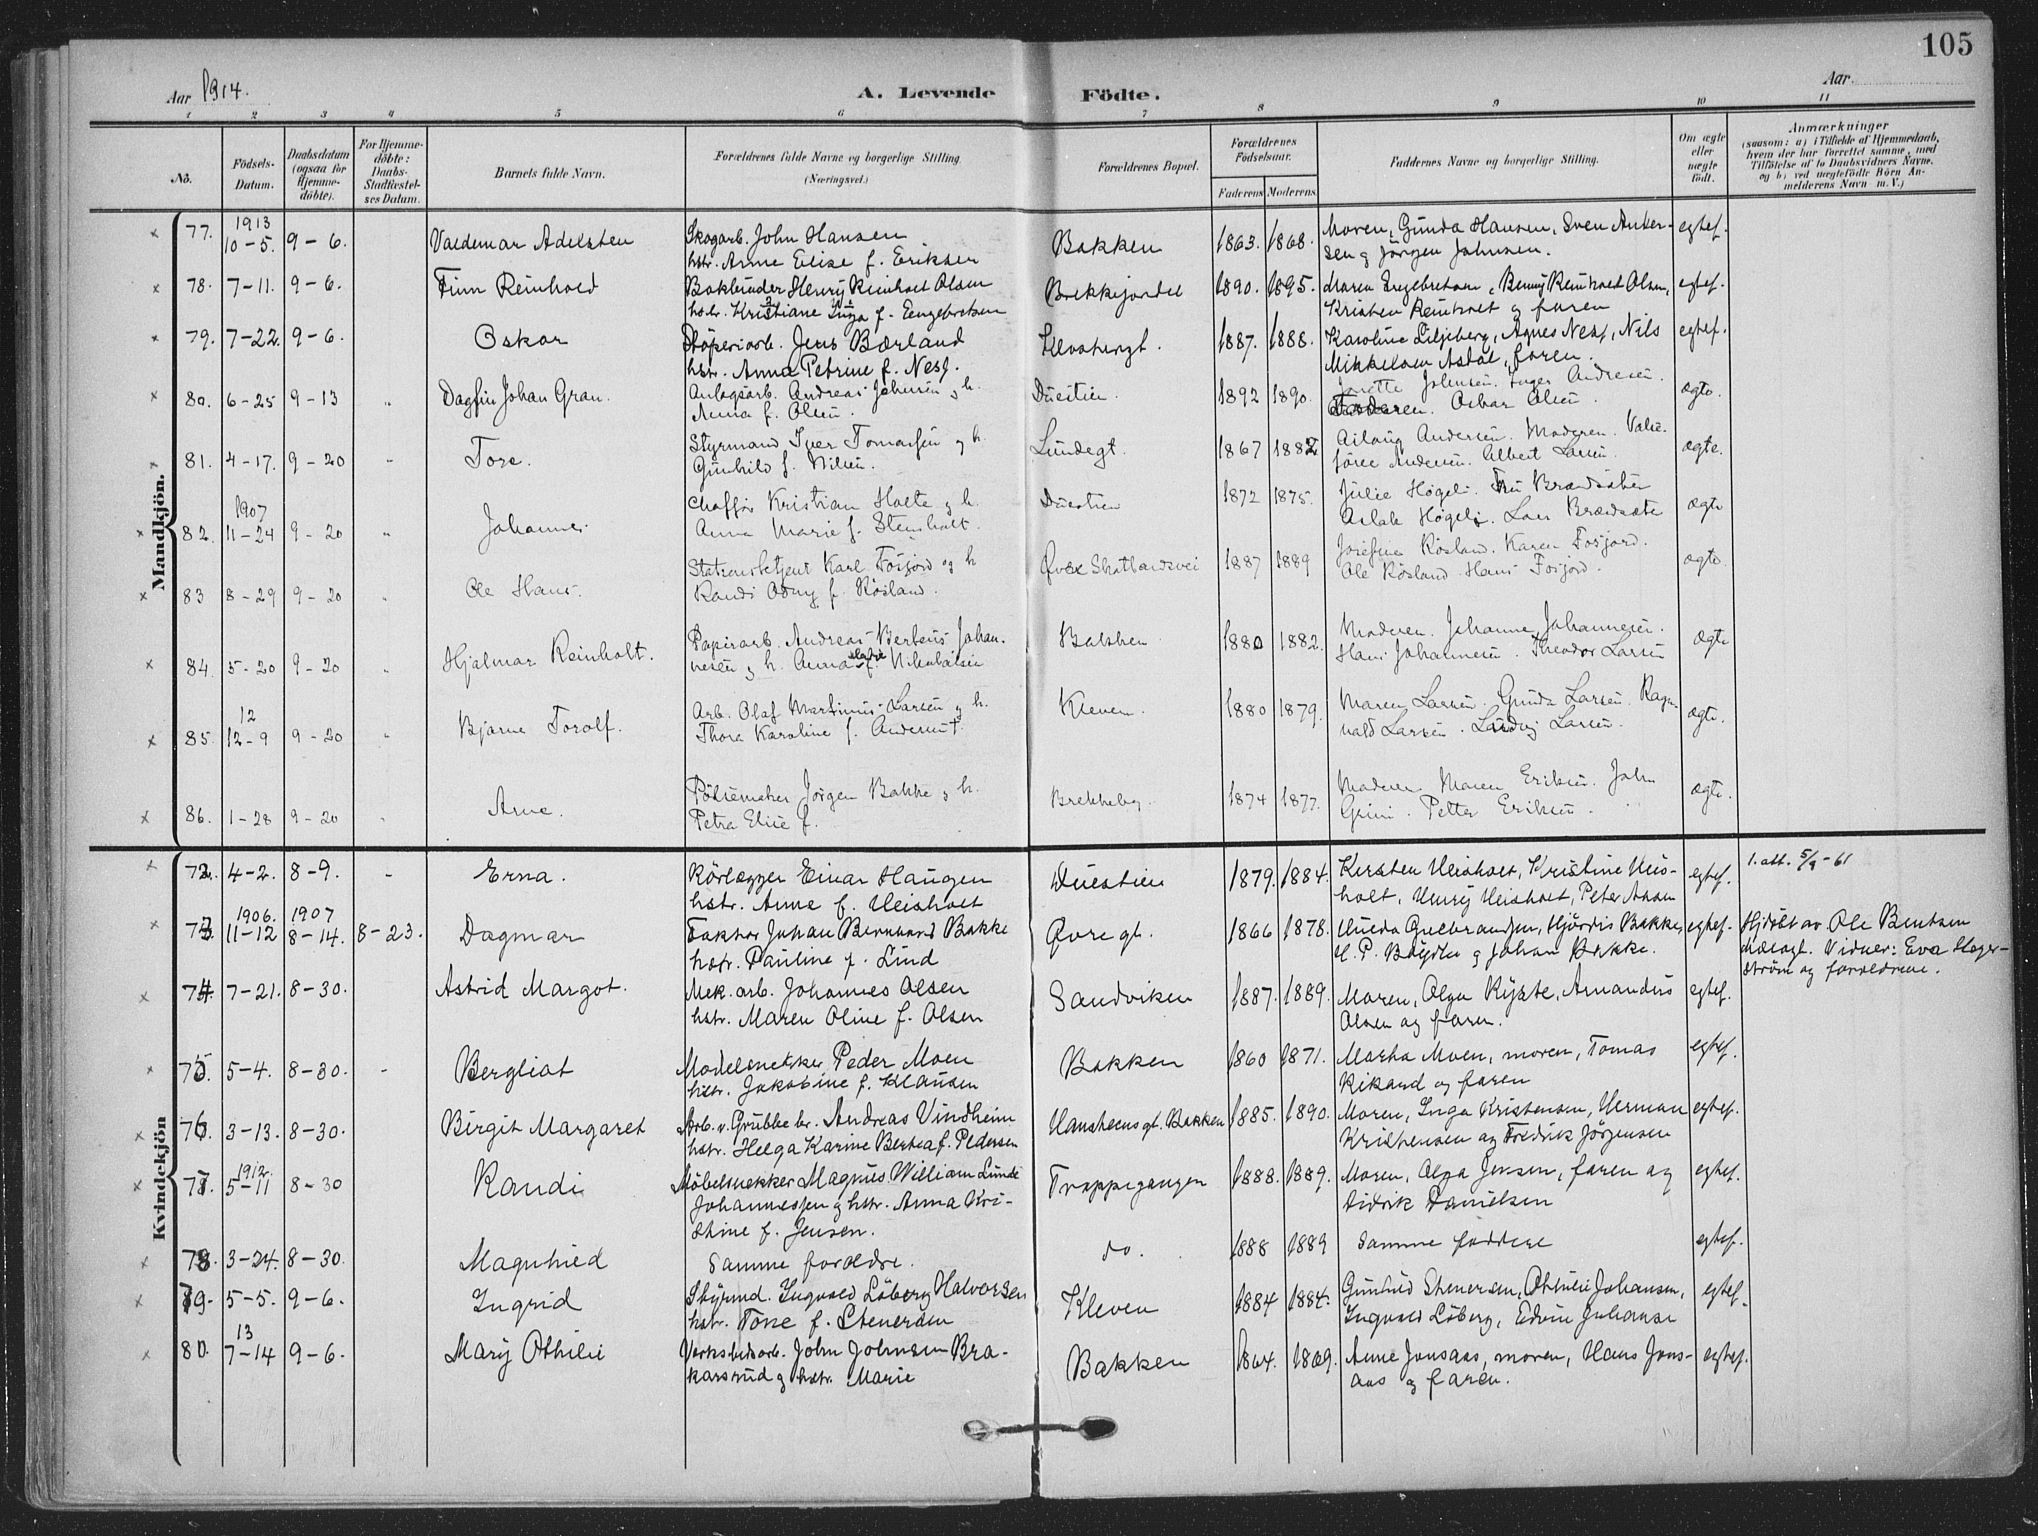 105
Aar 1914.
A. Levende Födte.
Aar
1 2 3 4 5 6 7 8 9 10 11
No.
Födsels-Datum.
Daabsdatum (ogsaa for Hjemme-döbte).
For Hjemme-döbte: Daabs-Stadfæstel-ses Datum.
Barnets fulde Navn.
Forældrenes fulde Navne og borgerlige Stilling. (Næringsvei.)
Forældrenes Bopæl.
Forældrenes Födselsaar.
Faderens Moderens
Faddernes Navne og borgerlige Stilling.
Om ægte eller uægte födt.
Anmærkninger
(saasom: a) i Tilfælde af Hjemmedaab, hvem der har forrettet samme, med Tilföielse af to Daabsvidners Navne. og b) ved uægtefödte Börn An-melderens Navn m. V.)
Mandkjön.
77. 1913 10-5. 9-6. Valdemar Adelsten Skogarb. John Hansen Bakken 1863. 1868. Moren, Gunda Hansen, Sven Anker- egtef.
hstr. Anne Elise f. Eriksen sen og Jörgen Johnsen.
78. 7-11. 9-6. Finn Reinhold Bokbinder Henry Reinholt Olsen Brekkejordet 1890. 1895. Maren Engebretsen, Benny Reinholt Olsen, egtef.
hstr. Kristiane Inga f. Engebretsen Kristen Reinholt og faren
79. 7-22. 9-6. Oskar Stöperiarb. Jens Bærland Klostergt. 1887. 1888. Karoline Liljeberg, Agnes Ness, Nils egtef.
hstr. Anna Petrine f. Ness. Mikkelsen Asdal, faren.
80. 6-25 9-13 „ Dagfin Johan Gran. Anlægsarb. Andreas Johnsen og h. Duestien. 1892 1890. Janette Johnsen. Inger Andresen. ægte.
Anna f. Olsen. Faderen. Oskar Olsen.
81. 4-17. 9-20 „ Tore. Styrmand Iver Tomassen og h. Lundegt. 1867 1882 Aslaug Andersen. Moderen. ægte.
Gunhild f. Nilsen. Andersen. Albert Larsen.
82. 1907 11-24 9-20 „ Johannes Chaffør Kristian Holte og h. Duestien 1872 1875. Julie Høgeli. Fru Brædsæter ægte
Anna Marie f. Stensholt. Aslak Høgeli. Lars Brædsæte
83 8-29 9-20 „ Ole Hans. Stationsbetjent Karl Fosjord og h Øvre Skotlandsvei 1887 1889 Josefine Røsland. Karen Fosjord. ægte.
Randi Odny f. Røsland. Ole Røsland Hans Fosjord.
84. 5-20 9-20 „ Hjalmar Reinholt. Papirarb. Andreas Berteus Johan- Bakken 1880 1882. Moderen. Johanne Johannesen. ægte
nesen og h. Anna f. Nikolaisen Hans Johannesen. Theodor Larsen
85. 12 12-9 9-20 „ Bjarne Torolf. Arb. Olaf Martinius Larsen og h. Kleven. 1880 1879. Maren Larsen. Gunda Larsen. Ragn- ægte.
Thora Karoline f. Andersen. vald Larsen. Ludvig Larsen.
86. 1-28 9-20 „ Arne. Pölsemaker Jörgen Bakke og h. Brekkeby. 1874 1877. Moderen Maren Eriksen. John ægte.
Petra Elise f. Grini. Petter Eriksen.
Kvindekjön
72. 4-2. 8-9. - Erna. Rörlægger Einar Haugen Duestien 1879. 1884. Kirsten Meisholt, Kristine Meis- egtef. 1. att. 5/9-61
hstr. Anne f. Meisholt holt, Henry Meisholt, Peter Aasen
73. 1906. 11-12 1907 8-14. 8-23. Dagmar Faktor Johan Bernhard Bakke Øvregt. 1866 1878. Hulda Gulbrandsen, Hjördis Bakke, egtef. Hjdøbt av Ole Bentsen
hstr. Pauline f. Lind H. P. Böydler og Johan Bakke. Vidner: Eva Hager-
ström og forældrene.
74. 7-21. 8-30. Astrid Margot. Mek. arb. Johannes Olsen Sandviken 1887. 1889. Moren, Olga Rykte, Amandus egtef.
hstr. Maren Oline f. Olsen Olsen og faren.
75. 5-4. 8-30. - Bergliot Modelsnekker Peder Moen Bakken 1860 1871. Marha Moen, moren, Tomas egtef.
hstr. Jakobine f. Klausen Rikard og faren
76. 3-13. 8-30. Birgit Margaret Arb. v. Grubbe br. Andreas Vindheim Hansteensgt. Bakken 1885. 1890. Moren, Inga Kristensen, Herman egtef.
hstr. Helga Karine Bertea f. Pedersen Kristensen og Fredrik Jörgensen
77. 1912. 5-11 8-30 Randi Möbelsnekker Magnus William Lunde Trappegangen 1888. 1889. Moren, Olga Jensen, faren og egtef.
Johannessen og hstr. Anna Kri- Didrik Danielsen
stine f. Jensen.
78. 3-24. 8-30. Magnhild Samme forældre. do. 1888 1889 Samme faddere egtef.
79. 5-5. 9-6. Ingrid Styrmd. Ingvald Löberg Halvorsen Kleven 1884 1884. Gunhild Stenersen, Othilie Johansen, egtef.
hstr. Tone f. Stenersen Ingvald Löberg, Edvin Johanse
80. 13 7-14 9-6. Mary Othilie Verkstedsarb. John Johnsen Bra- Bakken 1864. 1869. Anne Jonsaas, moren, Hans Jons- egtef.
karsrud og hstr. Marie aas og faren.